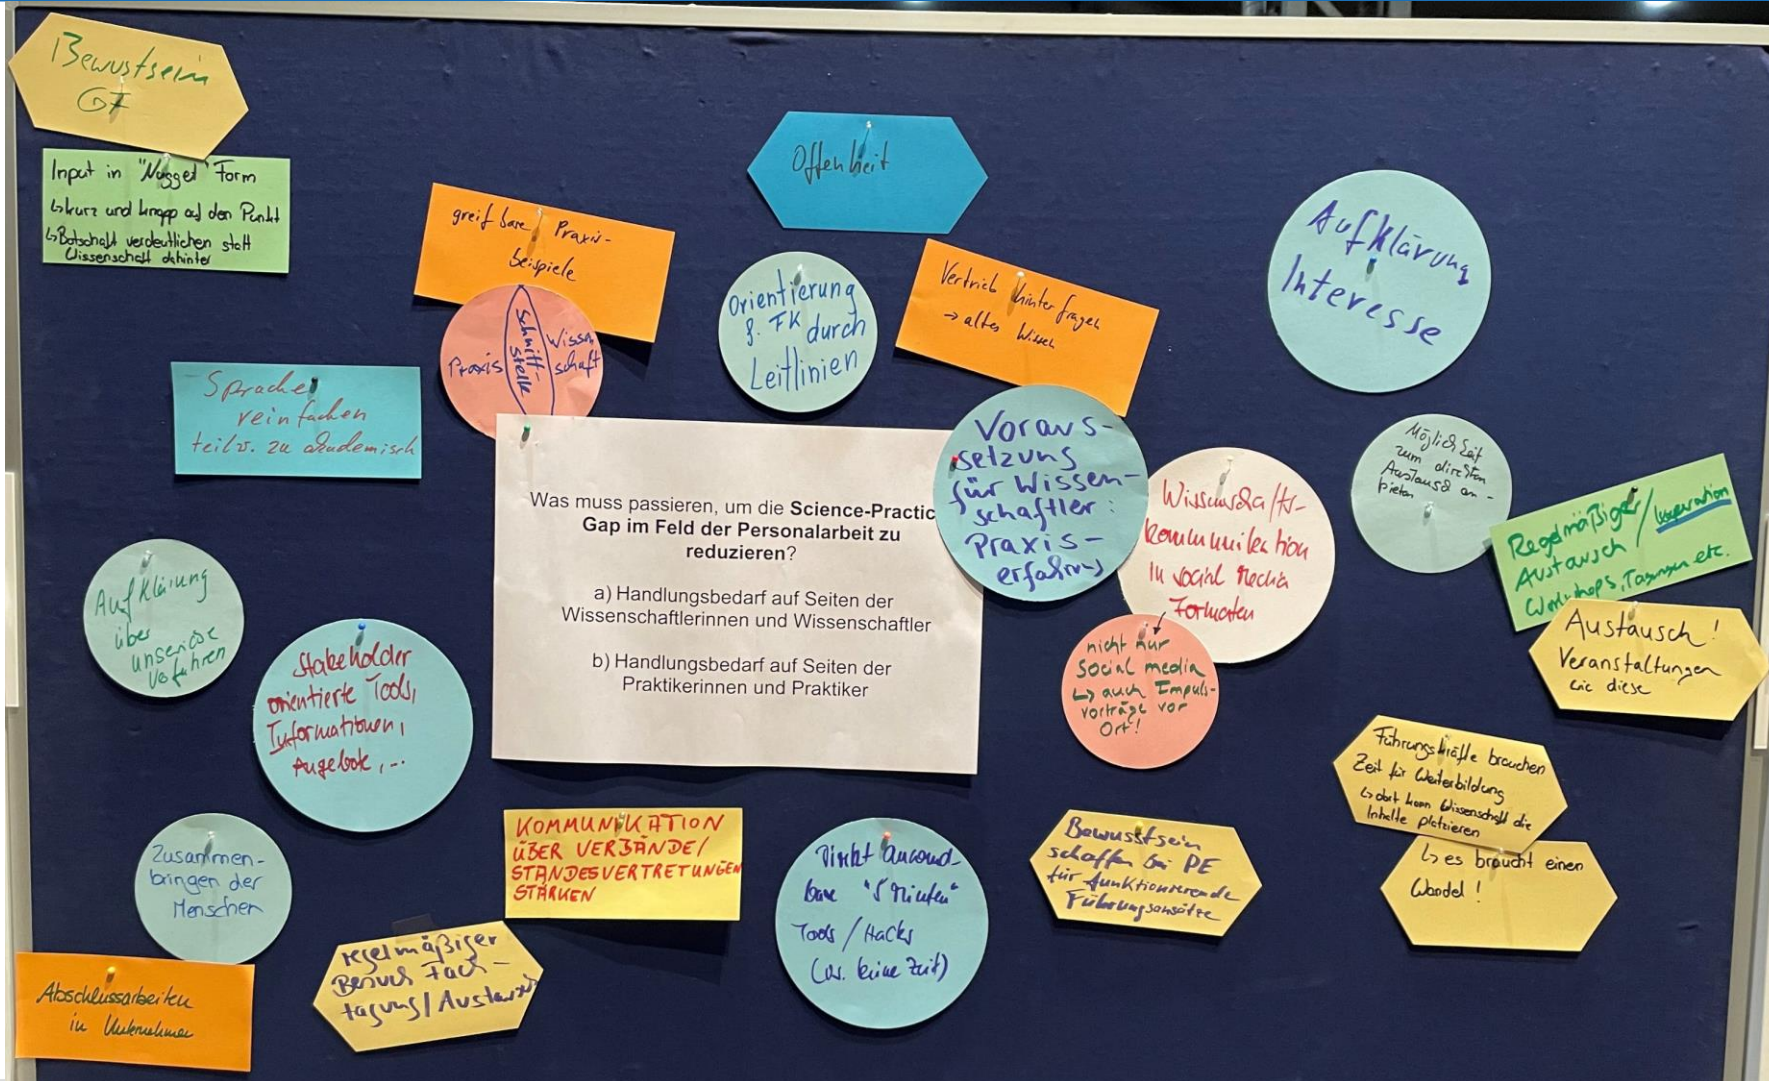 Bewustsein
GF
Input in "Nugget" Form
↳ kurz und knapp auf den Punkt
↳ Botschaft verdeutlichen statt
Wissenschaft dahinter
greifbare Praxis-
beispiele
Praxis
Schnitt-
stelle
Wissen
schaft
Offenheit
Orientierung
f. FK durch
Leitlinien
Vertrieb hinterfragen
→ altes Wissen
Aufklärung
Interesse
Sprache
reinfachen
teilw. zu akademisch
Was muss passieren, um die Science-Practic
Gap im Feld der Personalarbeit zu
reduzieren?
a) Handlungsbedarf auf Seiten der
Wissenschaftlerinnen und Wissenschaftler
b) Handlungsbedarf auf Seiten der
Praktikerinnen und Praktiker
Voraus-
setzung
für Wissen-
schaftler:
Praxis-
erfahrung
Wissenschafts-
kommunikation
in social Media
Formaten
nicht nur
Social media
↳ auch Impuls-
vorträge vor
Ort!
Möglichkeit
zum direkten
Austausch an-
bieten
Regelmäßiger/
Austausch
Workshops, Tagungen etc.
Austausch!
Veranstaltungen
wie diese
Aufklärung
über
unseriöse
Verfahren
Stakeholder
orientierte Tools,
Informationen,
Angebote, ...
Führungskräfte brauchen
Zeit für Weiterbildung
↳ dort kann Wissenschaft die
Inhalte platzieren
↳ es braucht einen
Wandel!
Zusammen-
bringen der
Menschen
KOMMUNIKATION
ÜBER VERBÄNDE/
STANDESVERTRETUNGEN
STÄRKEN
Direkt anwend-
bare "5 Minuten"
Tools / Hacks
(vs. keine Zeit)
Bewusstsein
schaffen bei PE
für funktionierende
Führungsansätze
Abschlussarbeiten
in Unternehmen
regelmäßiger
Besuch Fach-
tagung/Austausch